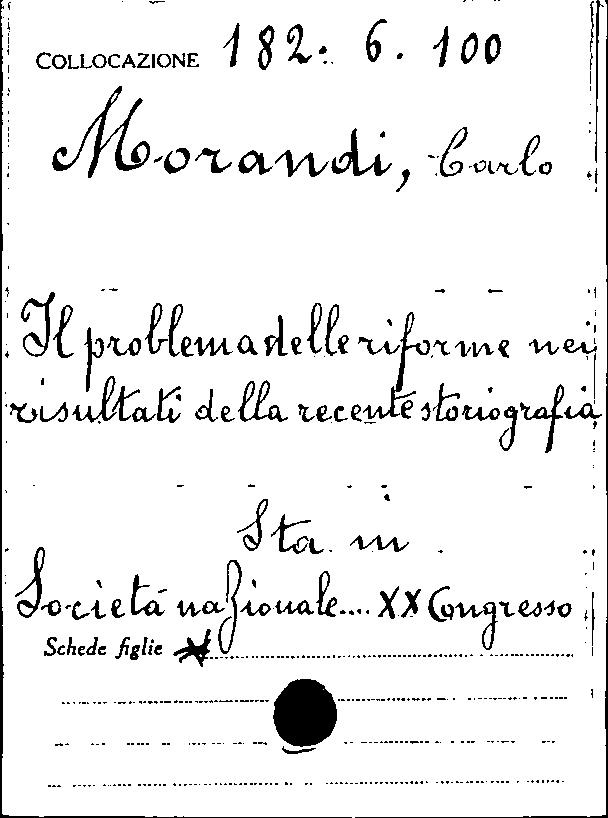 COLLOCAZIONE 182. 6. 100
Morandi, Carlo
Il problema delle riforme nei
risultati della recente storiografia
Sta in
Società nazionale.... XX Congresso
Schede figlie